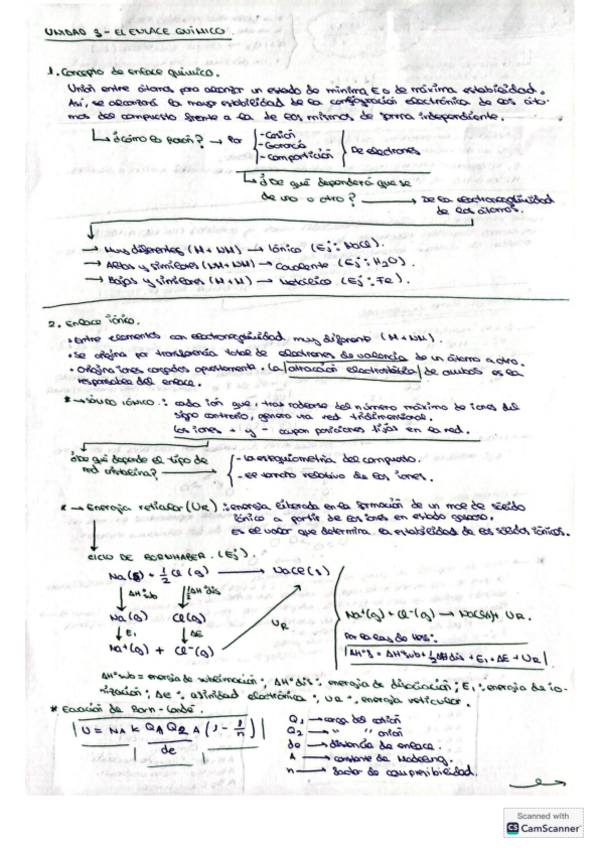 UNIDAD 3 - EL ENLACE QUÍMICO.
1. Concepto de enlace químico.
Unión entre átomos para alcanzar un estado de mínima E o de máxima estabilidad.
Así, se alcanzará la mayor estabilidad de la configuración electrónica de los áto-
mos del compuesto frente a la de los mismos de forma independiente.
¿Cómo lo hacen? → Por
- Cesión
- Ganancia
- Compartición
De electrones
¿De qué dependerá que se
dé uno u otro? → De la electronegatividad
de los átomos.
→ Muy diferentes (M + NM) → Iónico (Ej: NaCl).
→ Altas y similares (NM+NM) → Covalente (Ej: H2O).
→ Bajas y similares (M+M) → Metálico (Ej: Fe).
2. Enlace iónico.
· Entre elementos con electronegatividad muy diferente (M + NM).
· Se origina por transferencia total de electrones de valencia de un átomo a otro.
· Origina iones cargados opuestamente. La atracción electrostática de ambos es la
responsable del enlace.
* → SÓLIDO IÓNICO: cada ión que, tras rodearse del número máximo de iones del
signo contrario, genera una red tridimensional.
Los iones + y - ocupan posiciones fijas en la red.
¿De qué depende el tipo de
red cristalina? →
- La estequiometría del compuesto.
- El tamaño relativo de los iones.
* → Energía reticular (UR): energía liberada en la formación de un mol de sólido
iónico a partir de los iones en estado gaseoso.
Es el valor que determina la estabilidad de los sólidos iónicos.
CICLO DE BORN HABER. (Ej).
Na(s) + 1/2 Cl (g) → NaCl(s)
↓ ΔH°sub ↓ 1/2 ΔH°dis
Na(g) Cl(g)
↓ E1 ↓ ΔE
Na+(g) + Cl-(g)
UR
Na+(g) + Cl-(g) → NaCl(s) + UR.
Por la ley de Hess:
ΔH°f = ΔH°sub + 1/2 ΔH°dis + E1 + ΔE + UR
ΔH°sub = energía de sublimación; ΔH°dis: energía de disociación; E1: energía de io-
nización; ΔE = afinidad electrónica; UR = energía reticular.
* Ecuación de Born-Landé.
U = NA K QA Q2 A (1 - 1/n) / do
Q1 → carga del catión
Q2 → " " anión
do → distancia de enlace.
A → constante de Madelung.
n → factor de compresibilidad.
Scanned with
CS CamScanner